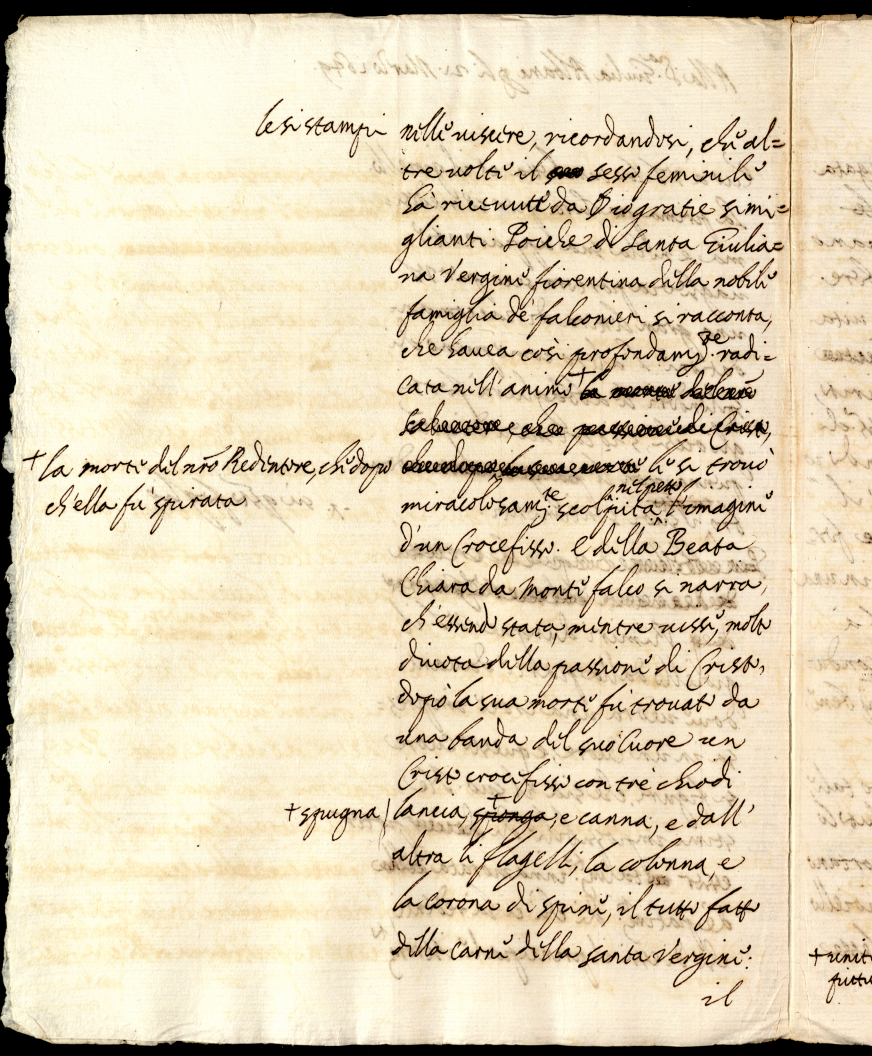 le si stampi nelle viscere, ricordandosi, che al=
tre volte il sesso feminile
hà ricevute da Dio gratie simi=
glianti Poiche di Santa Giulia=
na Vergine fiorentina della nobile
famiglia de falconieri si racconta,
che havea così profondam.te radi=
cata nell'animo +
salvatore, passione di Cristo,
+ la morte del nrō Redentore, che dopo
ch'ella fù spirata
le si trovò
miracolosam.te scolpita nel petto l'imagine
d'un Crocefisso. e della Beata
Chiara da Monte falco si narra,
ch'essendo stata, mentre visse, molto
divota della passione di Cristo,
dopò la sua morte fù trovato da
una banda del suo Cuore un
Cristo crocefisso con tre chiodi
+ spugna / lancia, + sponga, e canna, e dall'
altra li flagelli, la colonna, e
la corona di spine, il tutto fatto
della carne della santa Vergine:
il
+ unit